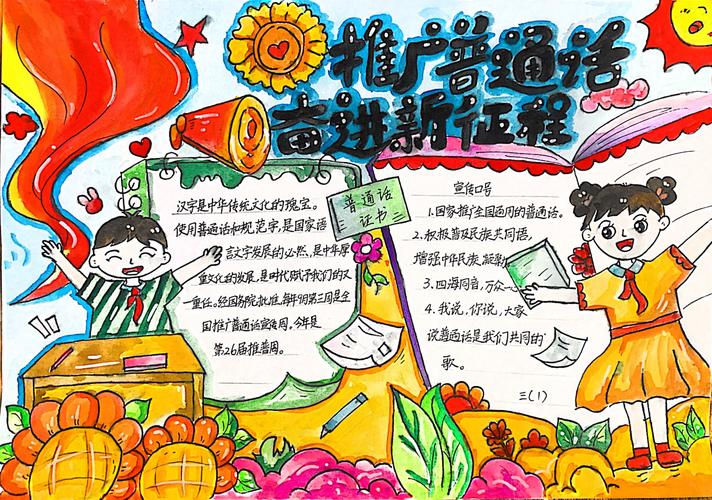 推广普通话
奋进新征程
汉字是中华传统文化的瑰宝。
使用普通话和规范字,是国家语
言文字发展的必然,是中华厚
重文化的发展,是时代赋予我们的又
重任。经国务院批准,每年9月第三周是全
国推广普通话宣传周。今年是
第26届推普周。
普通话
证书
宣传口号
1.国家推广全国通用的普通话。
2.积极普及民族共同语,
增强中华民族凝聚
3.四海同音,万众一心
4.我说,你说,大家
说普通话是我们共同的
歌。
三(1)